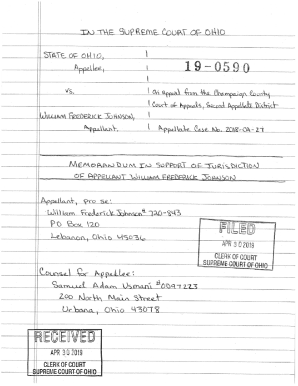 IN THE SUPREME COURT OF OHIO
STATE OF OHIO,
Appellee,
19-0590
vs.
On Appeal from the Champaign County
Court of Appeals, Second Appellate District
WILLIAM FREDERICK JOHNSON,
Appellant.
Appellate Case No. 2018-CA-27
MEMORANDUM IN SUPPORT OF JURISDICTION
OF APPELLANT WILLIAM FREDERICK JOHNSON
Appellant, pro se:
William Frederick Johnson # 720-843
PO Box 120
Lebanon, Ohio 45036
FILED
APR 30 2019
CLERK OF COURT
SUPREME COURT OF OHIO
Counsel for Appellee:
Samuel Adam Usmani #0097223
200 North Main Street
Urbana, Ohio 43078
RECEIVED
APR 30 2019
CLERK OF COURT
SUPREME COURT OF OHIO